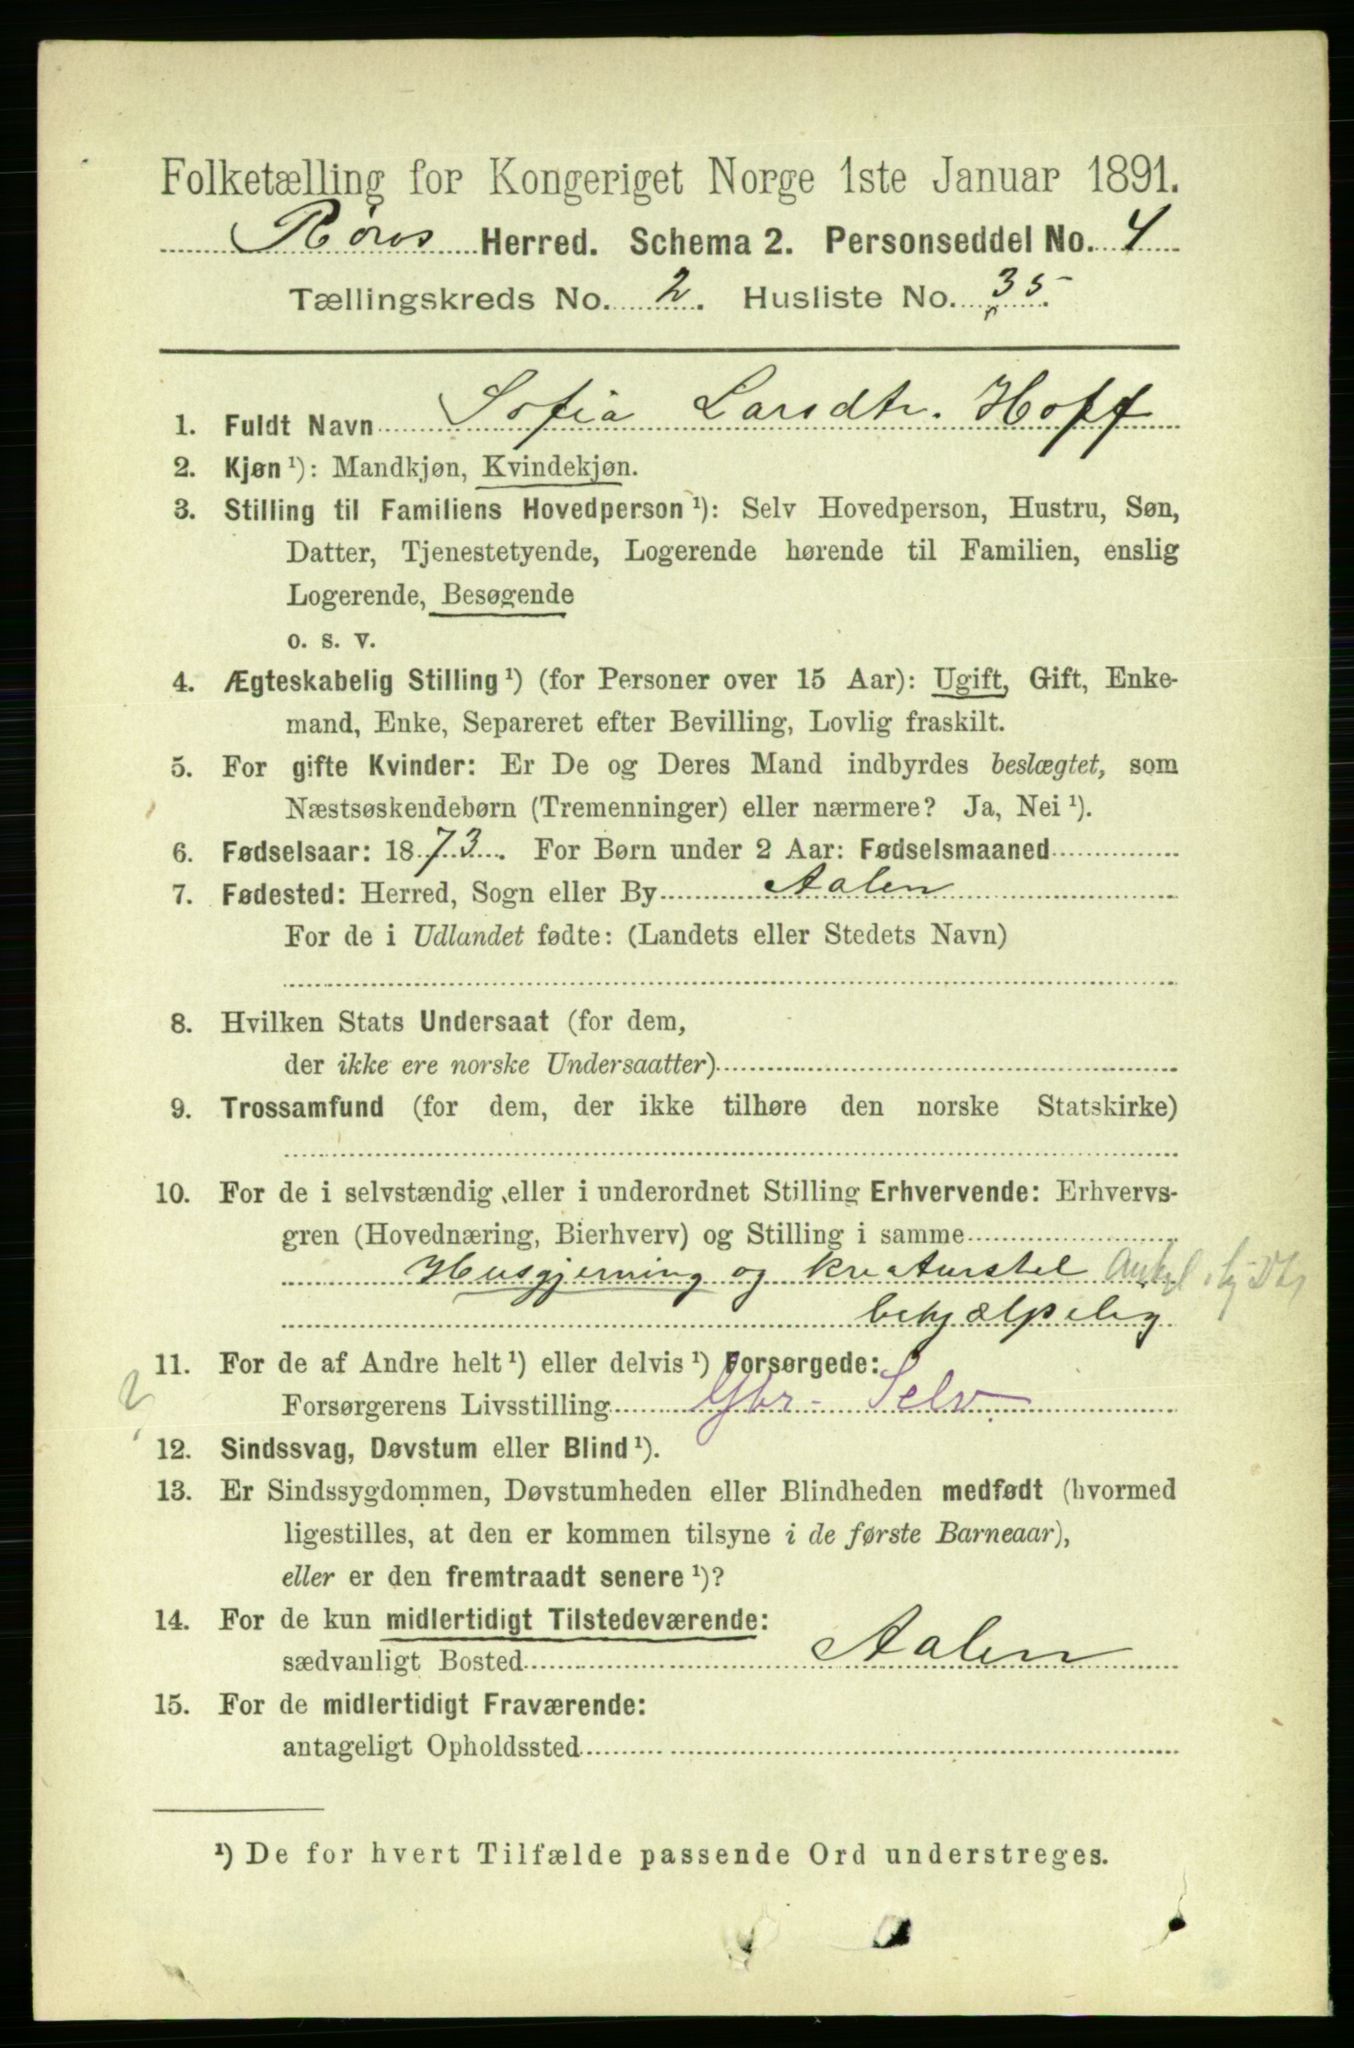 Folketælling for Kongeriget Norge 1ste Januar 1891.
Røros Herred. Schema 2. Personseddel No. 4
Tællingskreds No. 2. Husliste No. 35.
1. Fuldt Navn Sofia Larsdtr. Hoff
2. Kjøn ¹): Mandkjøn, Kvindekjøn.
3. Stilling til Familiens Hovedperson ¹): Selv Hovedperson, Hustru, Søn,
Datter, Tjenestetyende, Logerende hørende til Familien, enslig
Logerende, Besøgende
o. s. v.
4. Ægteskabelig Stilling ¹) (for Personer over 15 Aar): Ugift, Gift, Enke-
mand, Enke, Separeret efter Bevilling, Lovlig fraskilt.
5. For gifte Kvinder: Er De og Deres Mand indbyrdes beslægtet, som
Næstsøskendebørn (Tremenninger) eller nærmere? Ja, Nei ¹).
6. Fødselsaar: 1873. For Børn under 2 Aar: Fødselsmaaned
7. Fødested: Herred, Sogn eller By Aalen
For de i Udlandet fødte: (Landets eller Stedets Navn)
8. Hvilken Stats Undersaat (for dem,
der ikke ere norske Undersaatter)
9. Trossamfund (for dem, der ikke tilhøre den norske Statskirke)
10. For de i selvstændig eller i underordnet Stilling Erhvervende: Erhvervs-
gren (Hovednæring, Bierhverv) og Stilling i samme
Husgjerning og kreaturstel
behjælpelig
11. For de af Andre helt ¹) eller delvis ¹) Forsørgede:
Forsørgerens Livsstilling Gbr - Selv.
12. Sindssvag, Døvstum eller Blind ¹).
13. Er Sindssygdommen, Døvstumheden eller Blindheden medfødt (hvormed
ligestilles, at den er kommen tilsyne i de første Barneaar),
eller er den fremtraadt senere ¹)?
14. For de kun midlertidigt Tilstedeværende:
sædvanligt Bosted Aalen
15. For de midlertidigt Fraværende:
antageligt Opholdssted
¹) De for hvert Tilfælde passende Ord understreges.